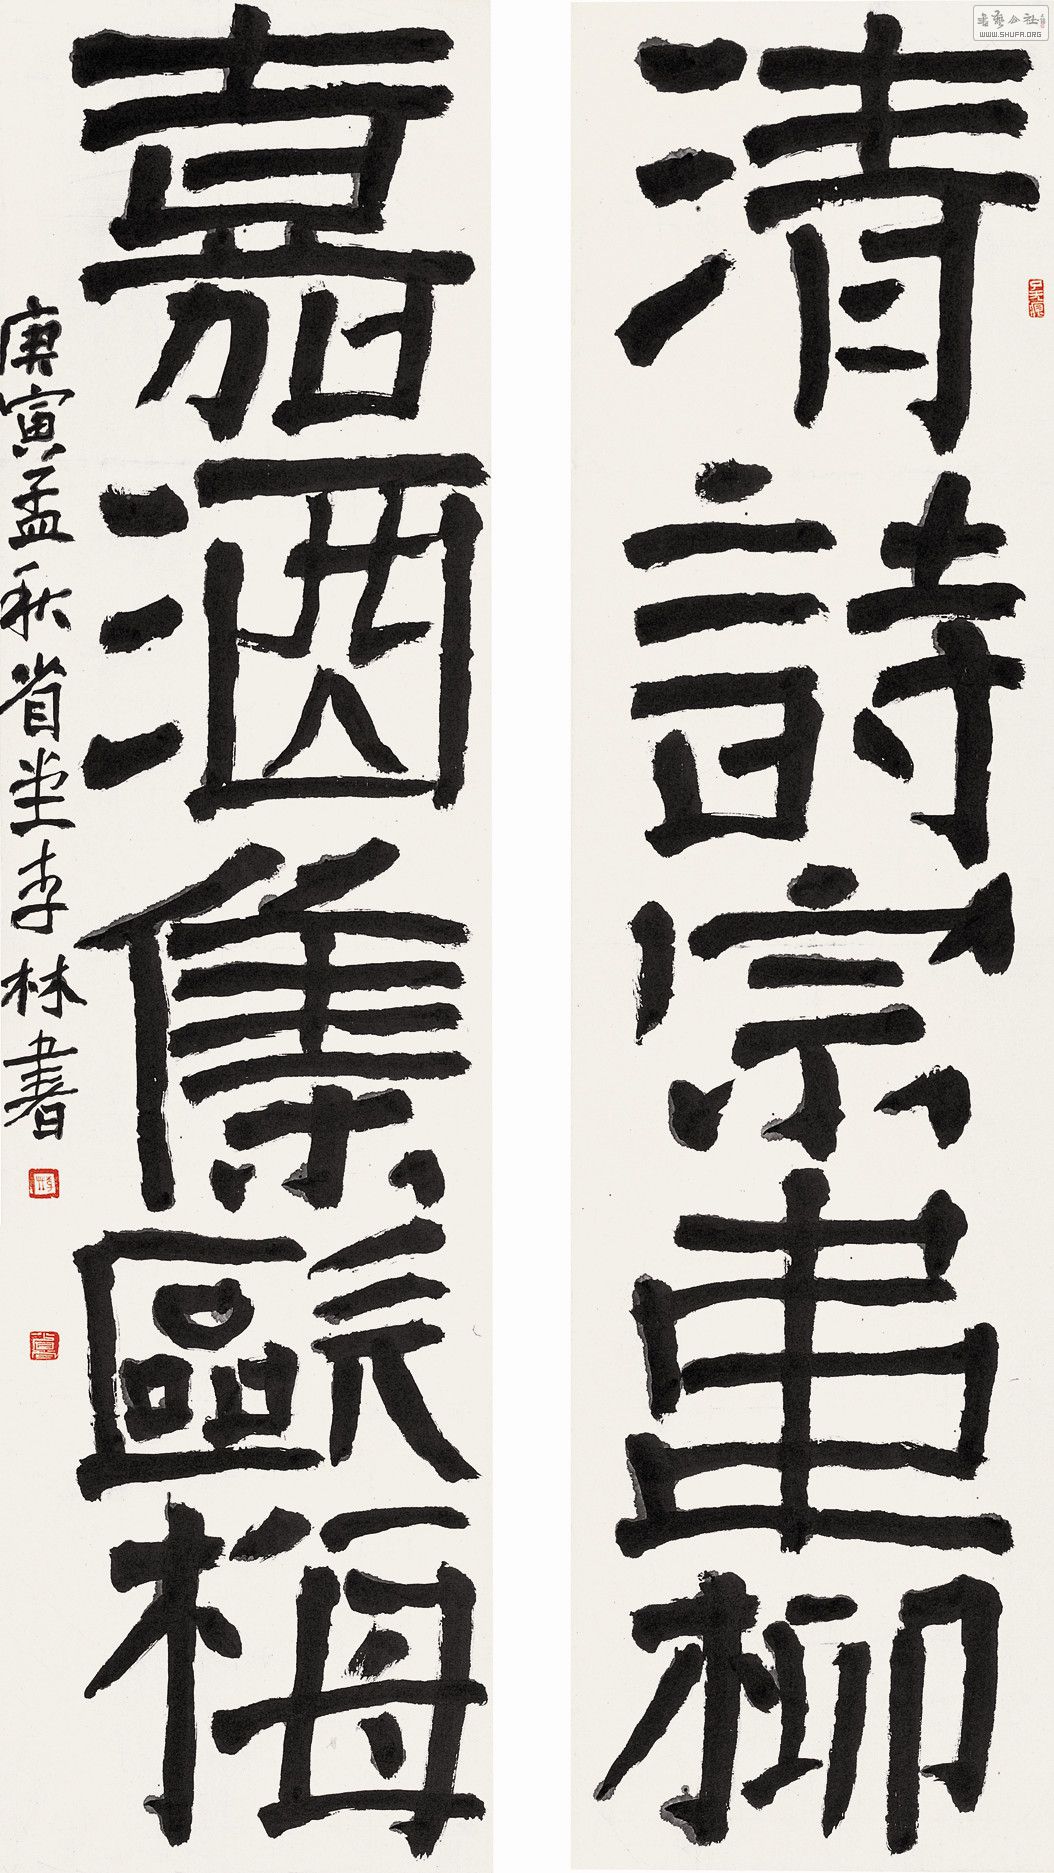 清詩宗韋柳
嘉酒集歐梅
庚寅孟秋省堂李林書
書藝公社
WWW.SHUFA.ORG